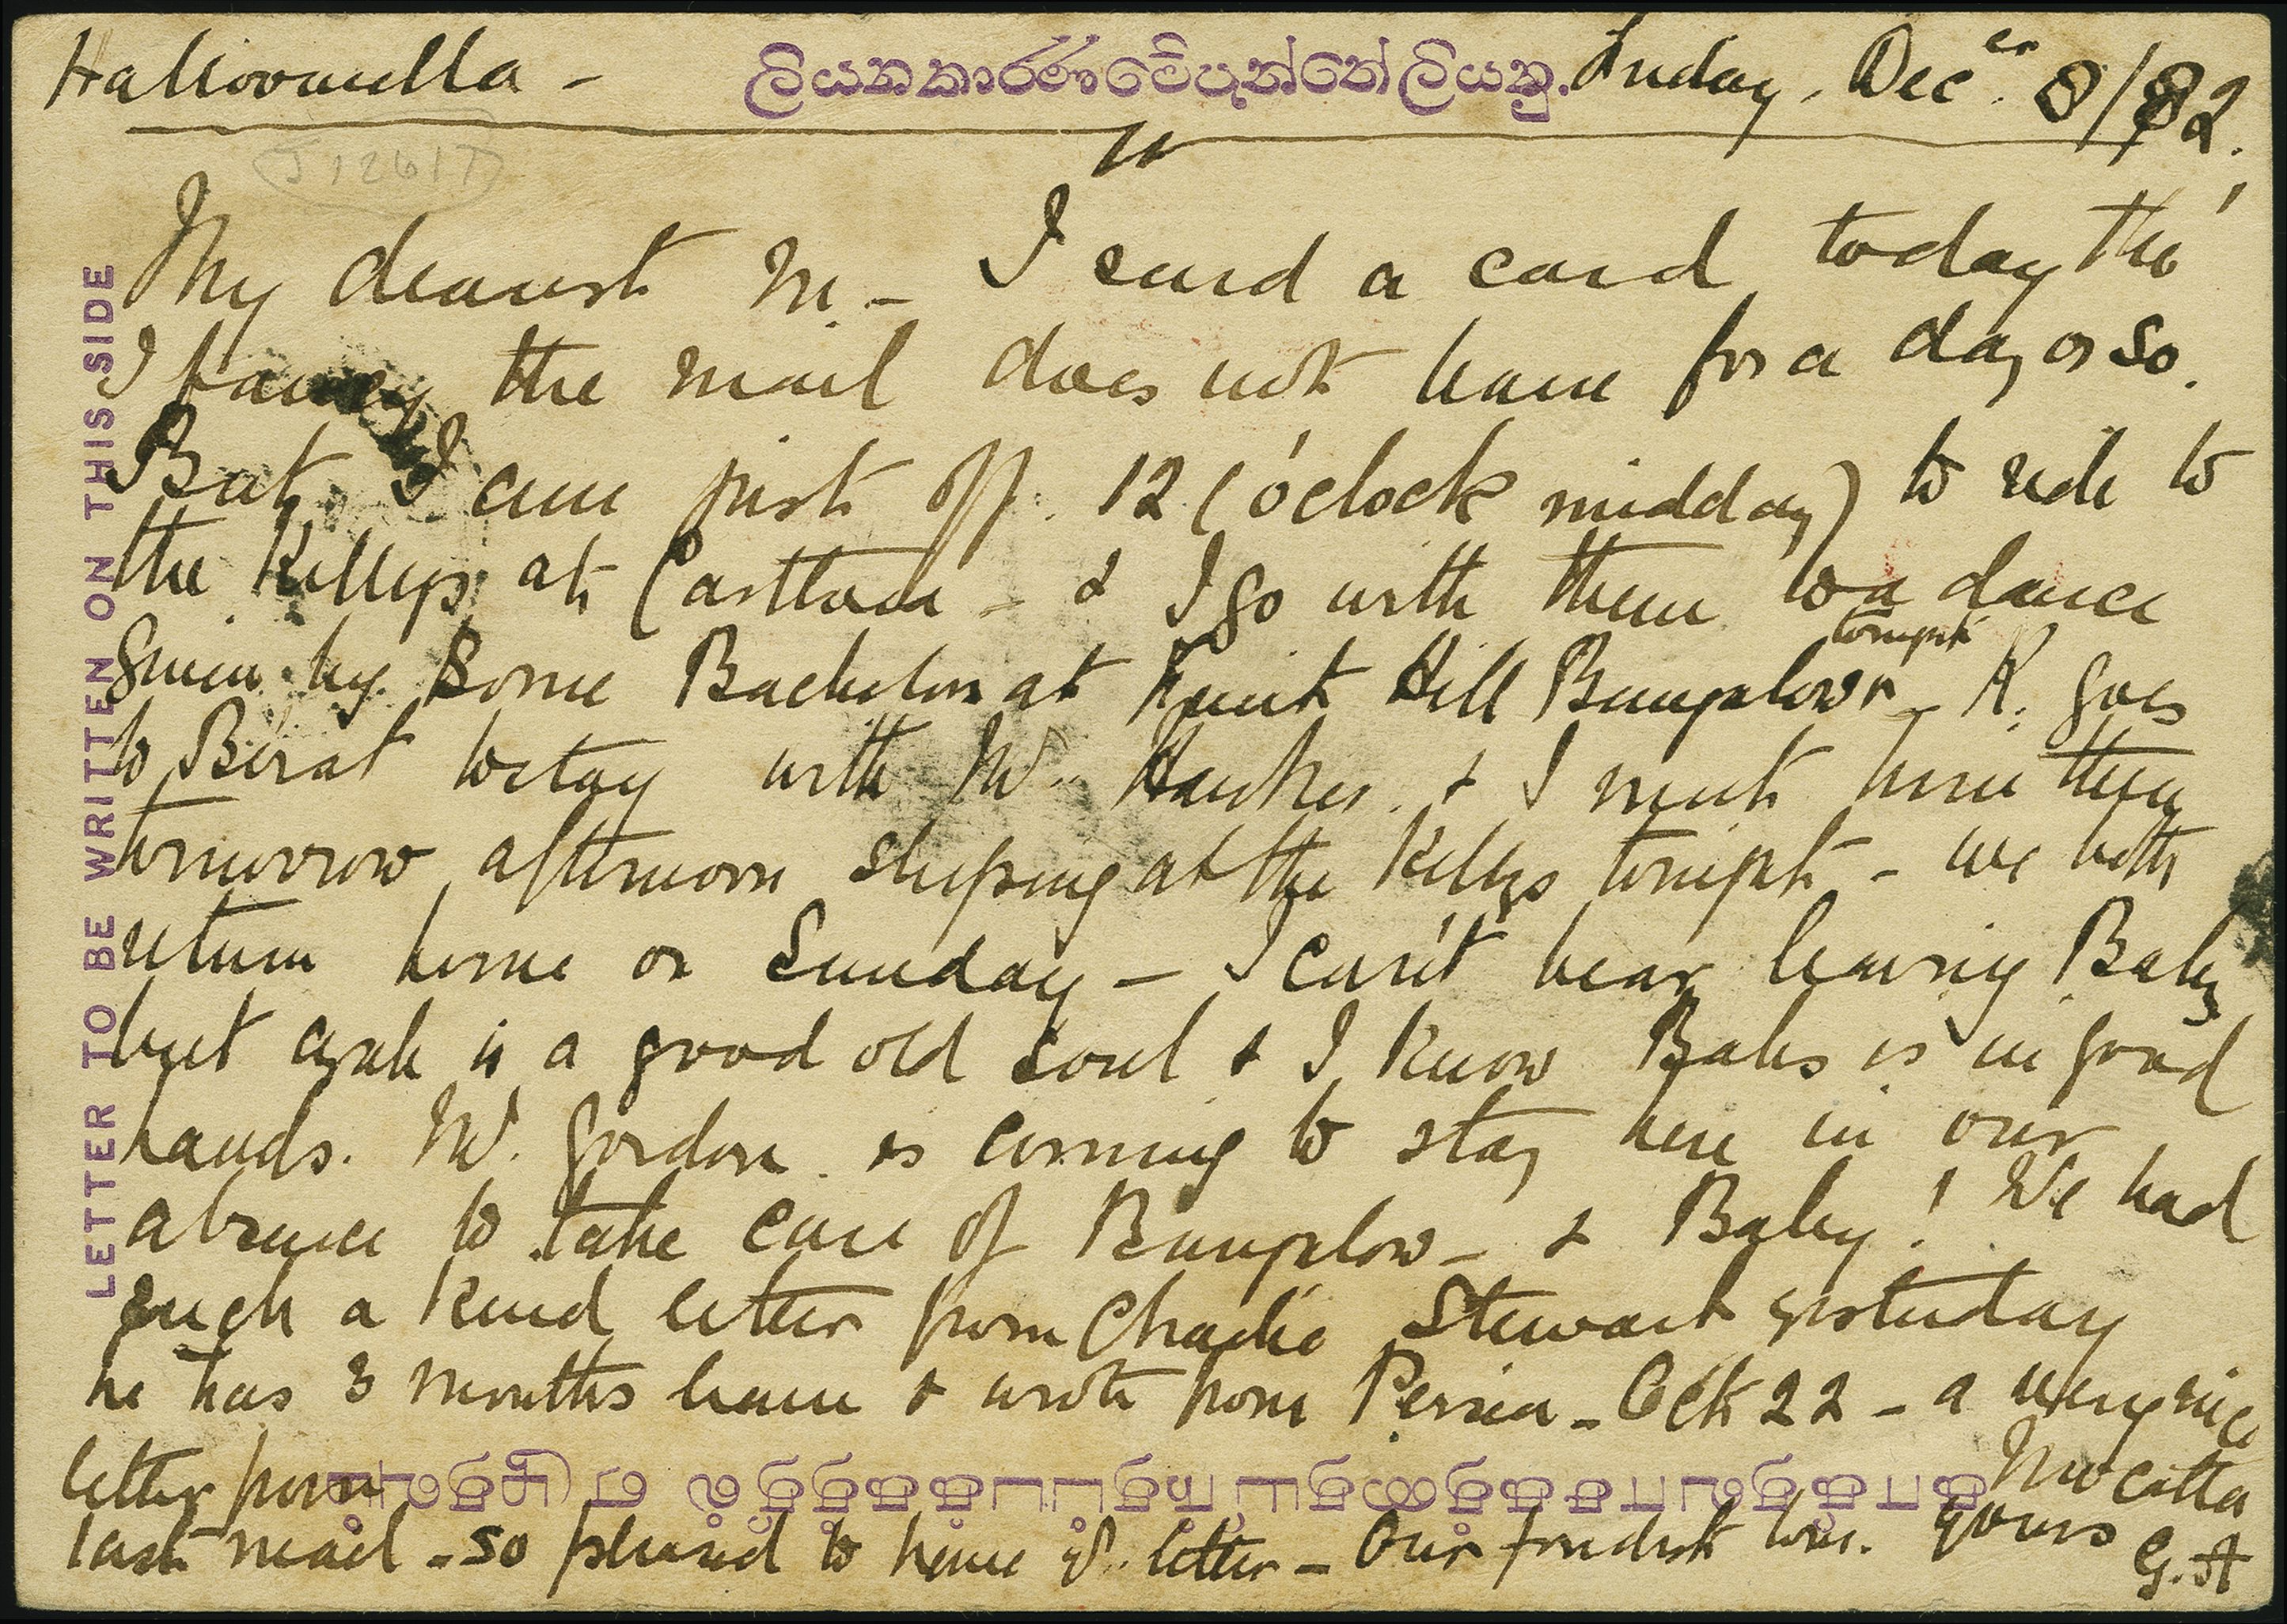 Halloowella - ලියනකාරණාමේපැත්තේලියනු. Friday, Dec.er 8/82.
J1261T
My dearest M. - I send a card today tho'
I fancy the mail does not leave for a day or so.
But I am just off. 12 (o'clock midday) to ride to
the Kellys at - & I go with them to a dance
given by some Bachelors at Hill Bungalow tonight - R. goes
to to stay with Mr. & I meet him there
tomorrow afternoon sleeping at the Kellys tonight - we both
return home on Sunday - I can't bear leaving Baby
but ayah is a good old soul & I know Babs is in good
hands. Mr. Gordon is coming to stay here in our
absence to take care of Bungalow - & Baby! We had
such a kind letter from Charlie Stewart yesterday
he has 3 months leave & wrote from Persia - Oct 22 - a very nice
letter from Mocatta
last mail - so pleased to have yr. letter - Our fondest love. Yours G. A
LETTER TO BE WRITTEN ON THIS SIDE